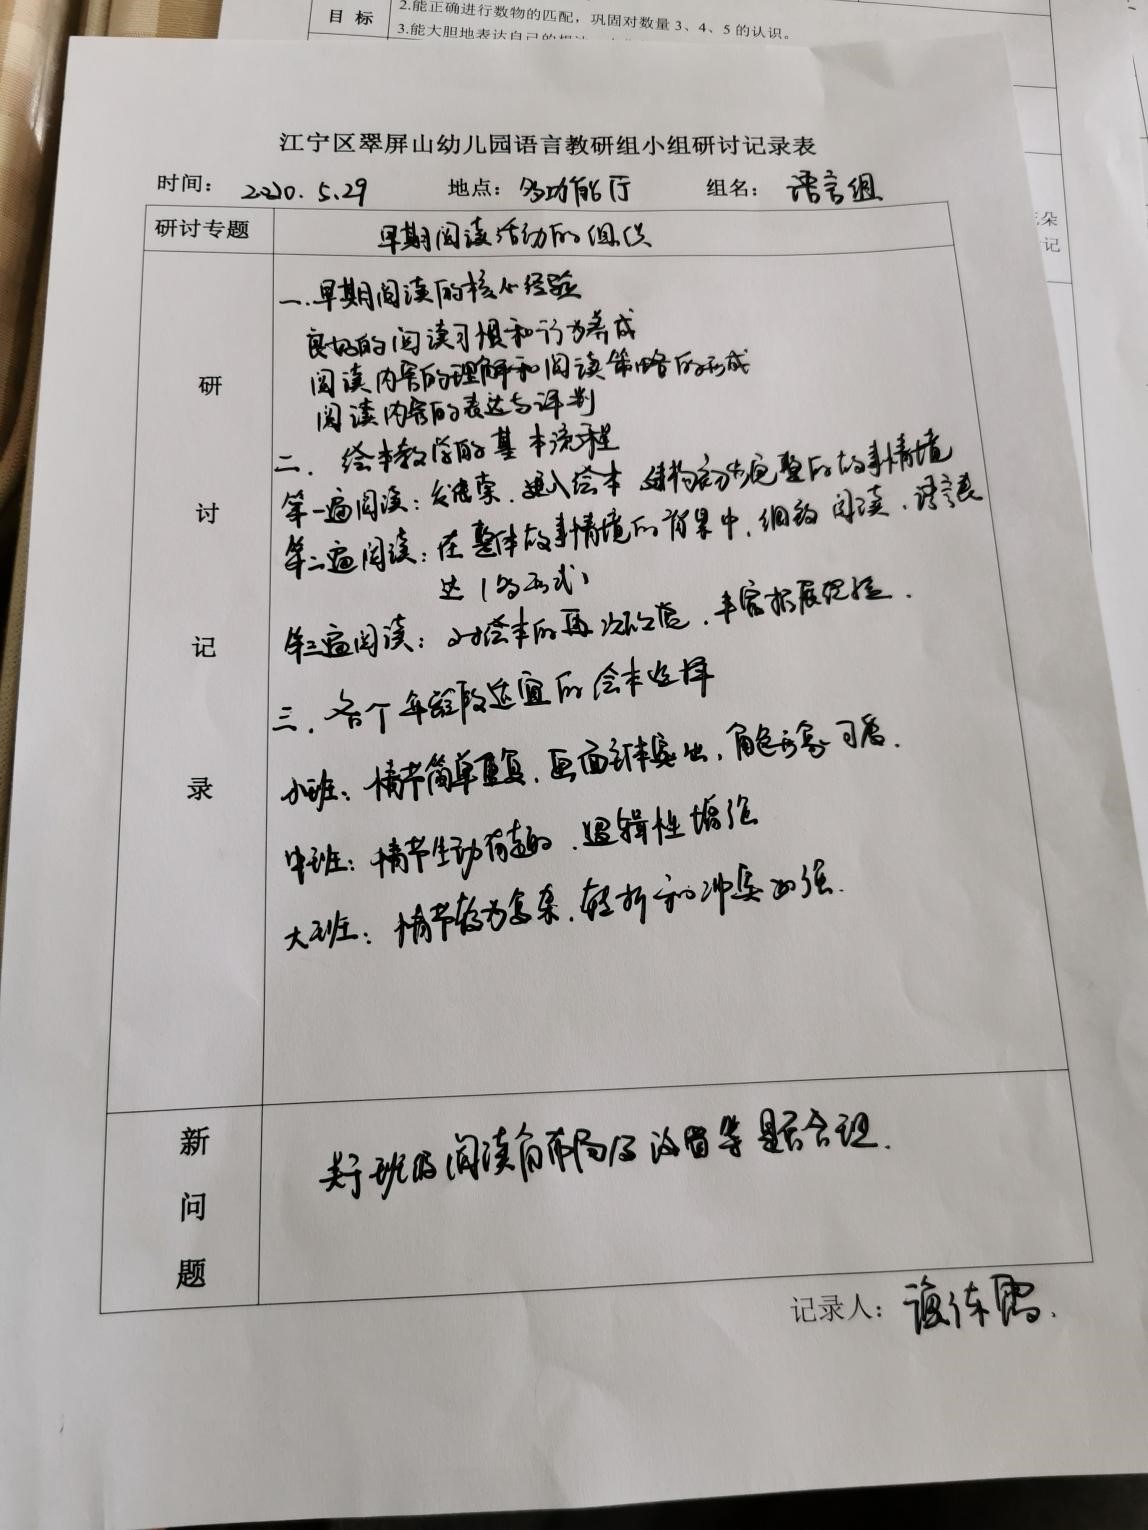 目 标
2.能正确进行数物的匹配，巩固对数量 3、4、5 的认识。
3.能大胆地表达自己的
朵
记
江宁区翠屏山幼儿园语言教研组小组研讨记录表
时间： 2020.5.29 地点：多功能厅 组名：语言组
研讨专题 早期阅读活动的组织
研讨记录
一.早期阅读的核心经验
良好的阅读习惯和行为养成
阅读内容的理解和阅读策略的形成
阅读内容的表达与评判
二. 绘本教学的基本流程
第一遍阅读：发线索.进入绘本 建构初步完整的故事情境
第二遍阅读：在整体故事情境的背景中.细致阅读.语言表
达（多形式）
第三遍阅读：对绘本的再次 .丰富拓展经验.
三.各个年龄段适宜的绘本选择
小班：情节简单重复.画面主体突出，角色形象可爱.
中班：情节生动有趣.逻辑性增强
大班：情节较为复杂.转折和冲突加强.
新问题
关于班级阅读角布局及设置等是否合理.
记录人：